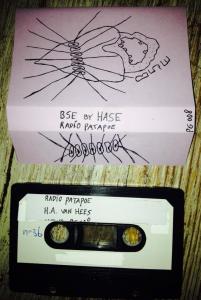 BSE
BSE BY HASE
RADIO PATAPOE
PG 008
RADIO PATAPOE
H.A. VAN HEES
nº36